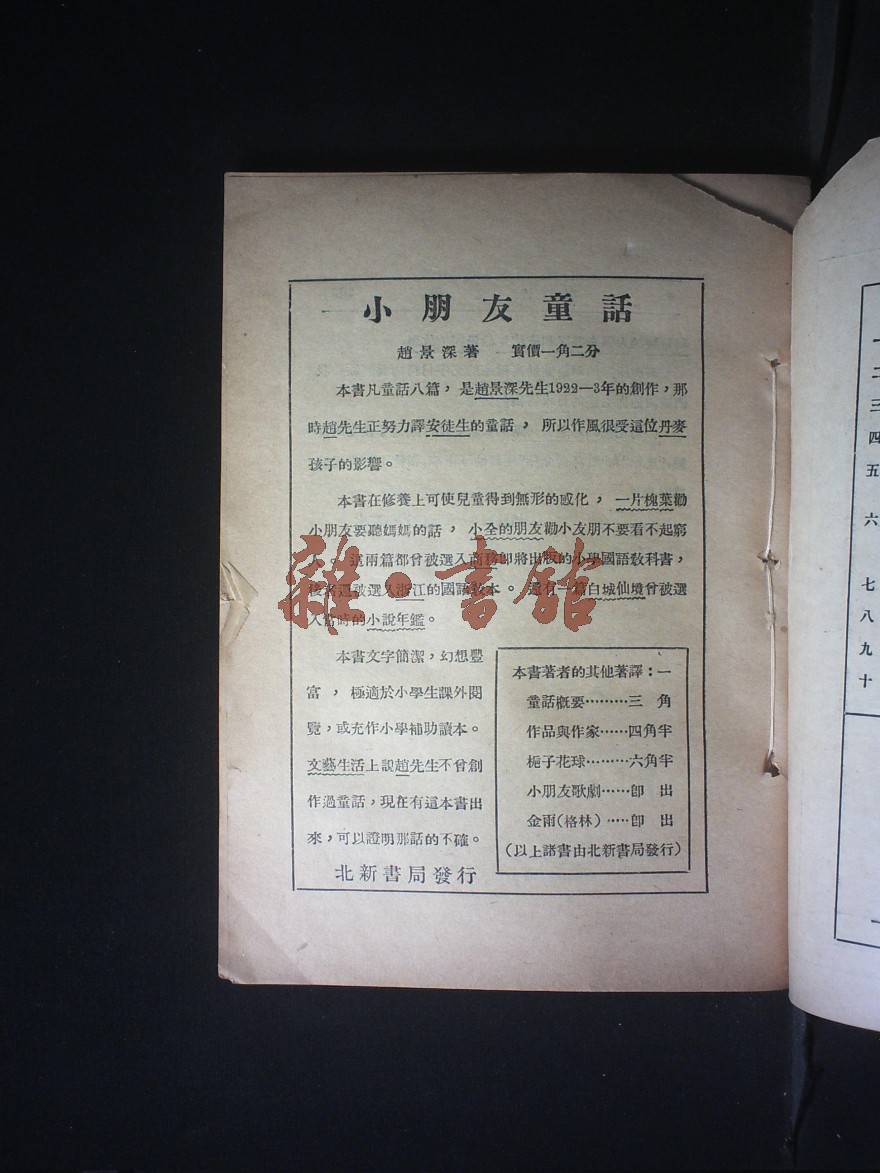 小朋友童話
趙景深著 實價一角二分
本書凡童話八篇，是趙景深先生1922—3年的創作，那
時趙先生正努力譯安徒生的童話，所以作風很受這位丹麥
孩子的影響。
本書在修養上可使兒童得到無形的感化，一片槐葉勸
小朋友要聽媽媽的話，小全的朋友勸小友朋不要看不起窮
人。這兩篇都曾被選入商務即將出版的小學國語教科書，
後者還被選入浙江的國語教本。還有一篇白城仙境曾被選
入當時的小說年鑑。
本書文字簡潔，幻想豐
富，極適於小學生課外閱
覽，或充作小學補助讀本。
文藝生活上說趙先生不曾創
作過童話，現在有這本書出
來，可以證明那話的不確。
北新書局發行
本書著者的其他著譯：—
童話概要………三角
作品與作家……四角半
梔子花球………六角半
小朋友歌劇……即出
金雨(格林)……即出
(以上諸書由北新書局發行)
雜·書館
一
二
三
四
五
六
七
八
九
十